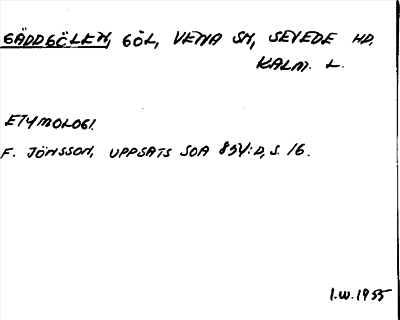 GÄDDGÖLEN, GÖL, VENA SN, SEVEDE HD.
KALM. L.
ETYMOLOGI.
F. JÖNSSON, UPPSATS SOA 854:D, S. 16.
I.W. 1955